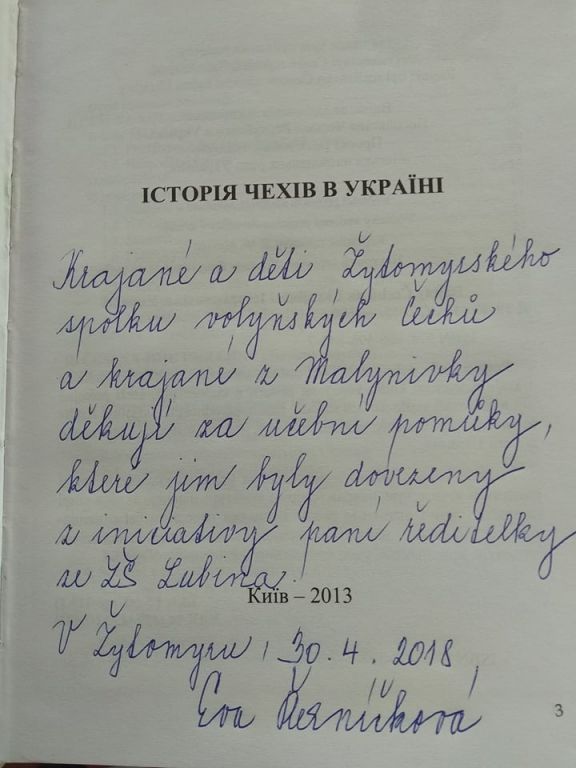 ІСТОРІЯ ЧЕХІВ В УКРАЇНІ
Krajané a děti Žytomyrského
spolku volyňských Čechů
a krajané z Malynivky
děkují za učební pomůcky,
které jim byly dovezeny
z iniciativy paní ředitelky
ze ZŠ Lubina.
Київ – 2013
V Žytomyru, 30.4.2018
Eva Řezníčková
3